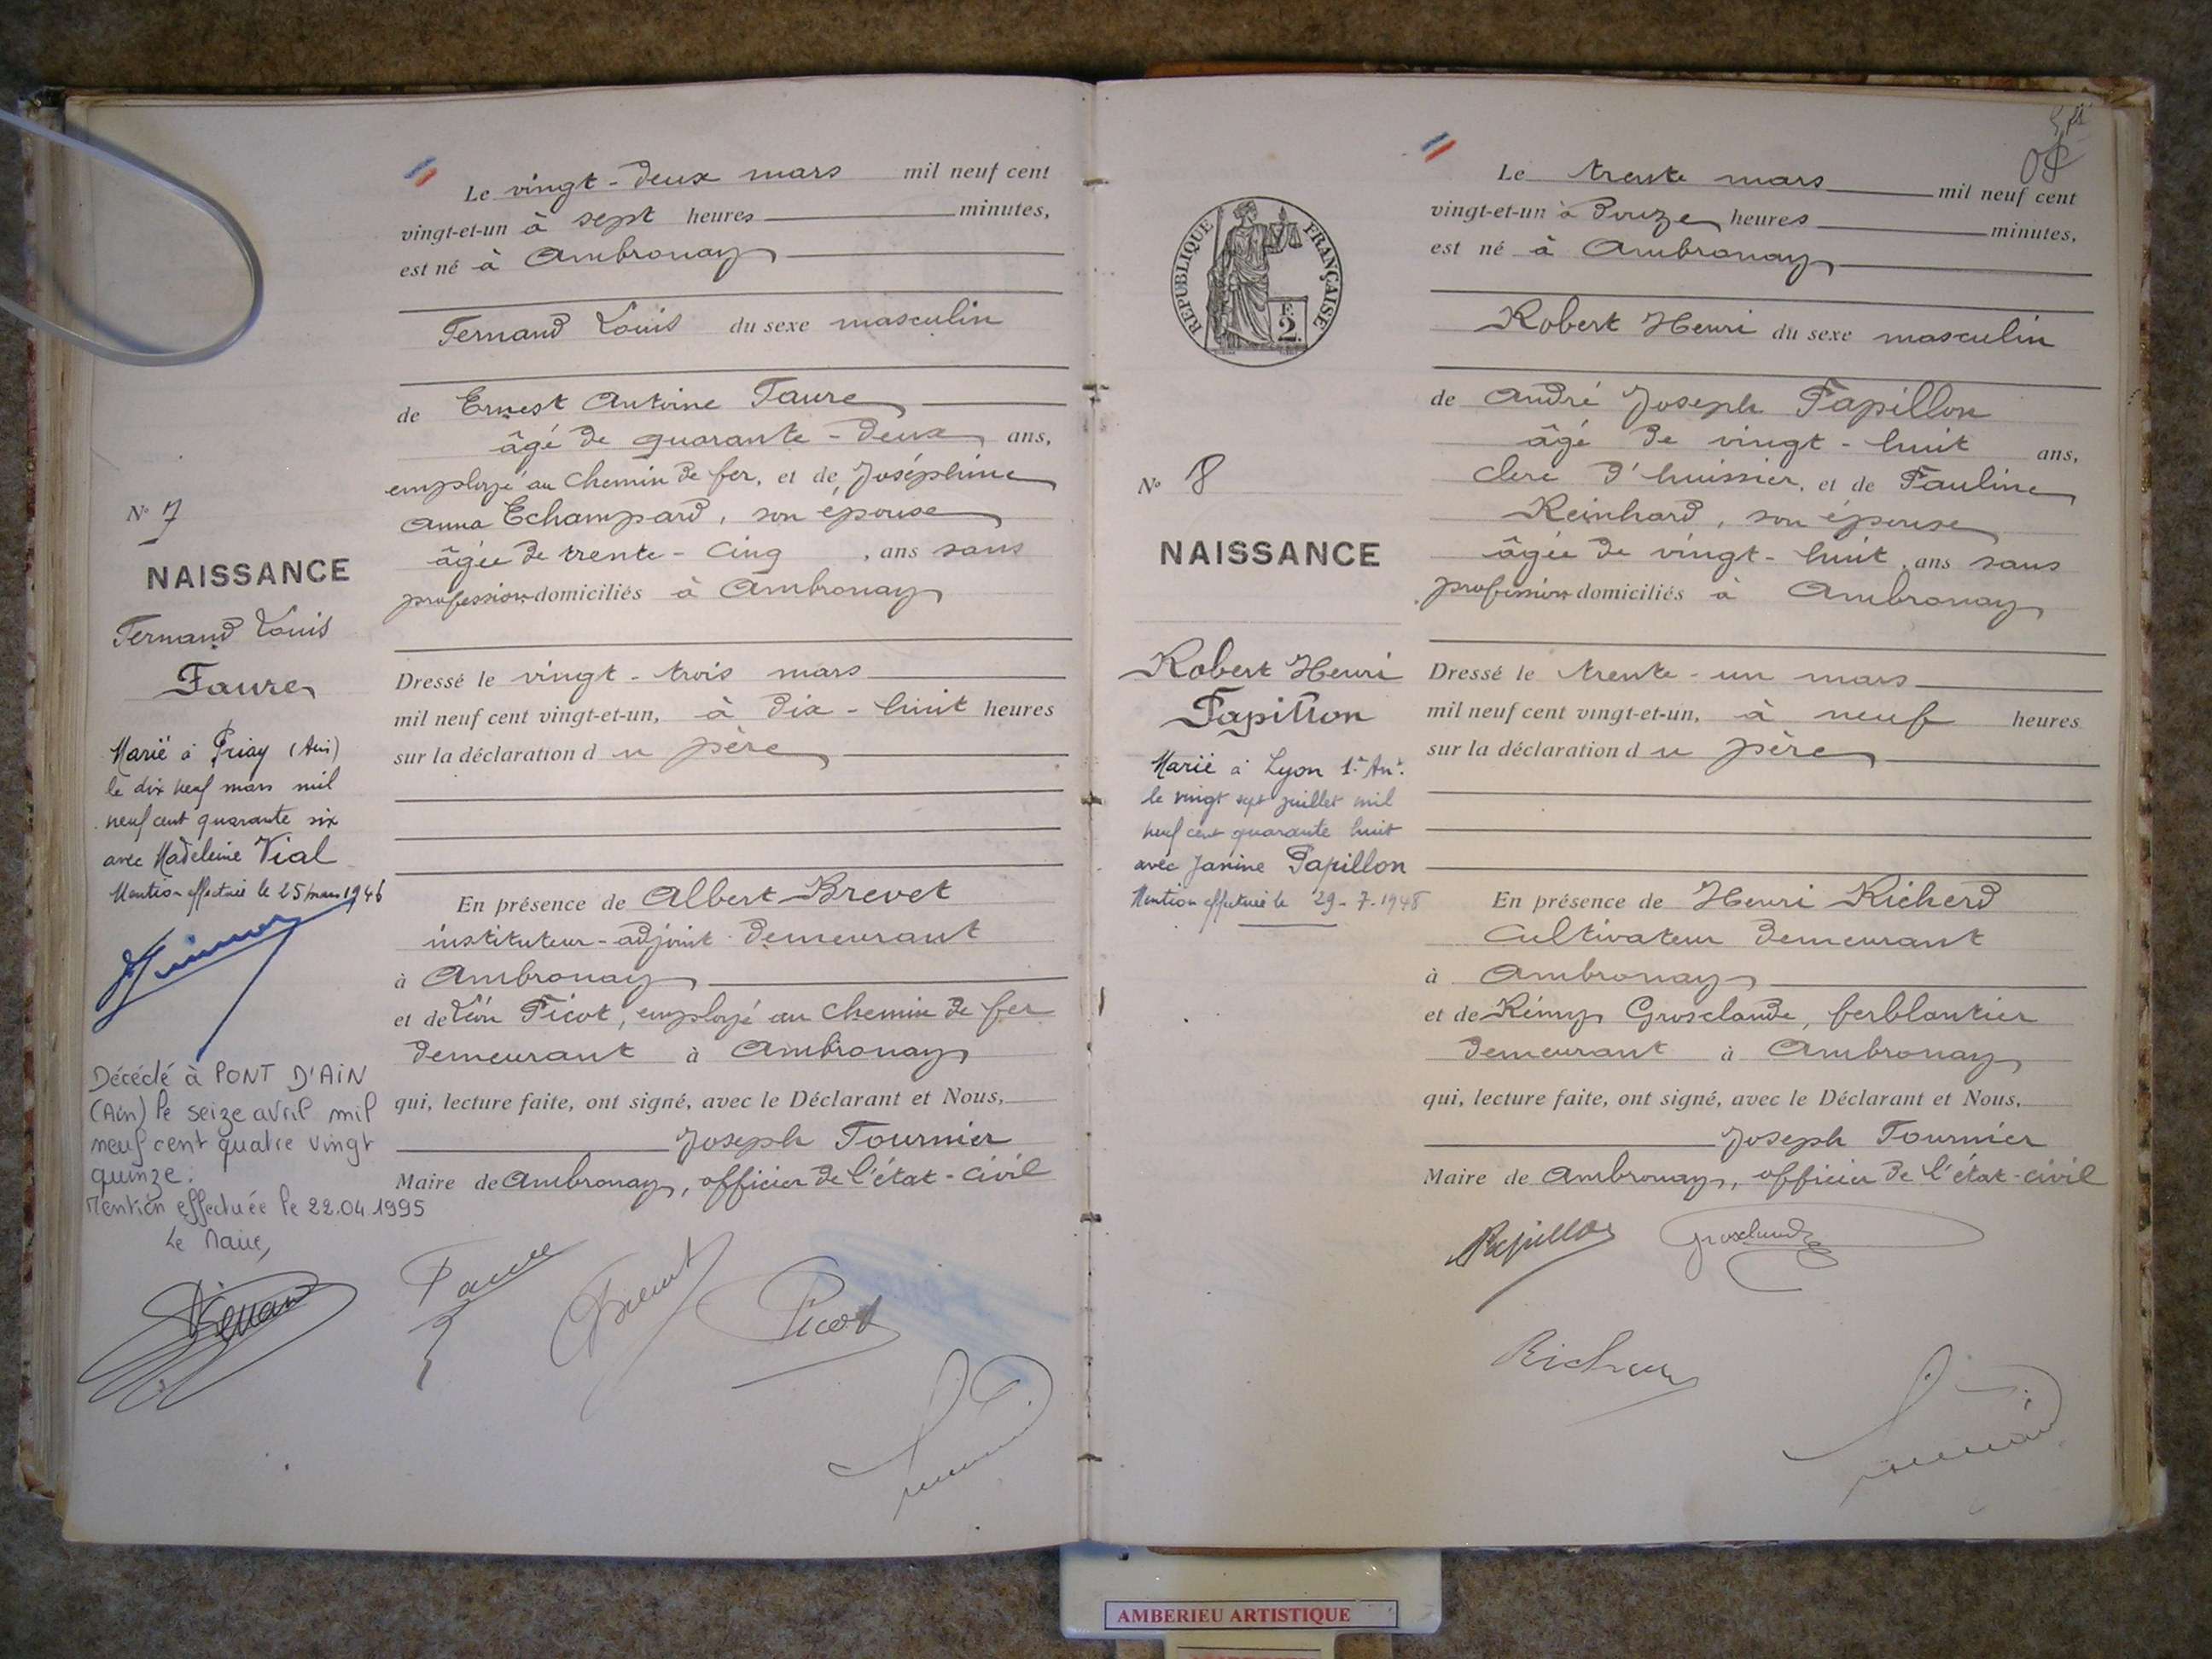 Le vingt-deux mars mil neuf cent
vingt-et-un à sept heures minutes,
est né à Ambronay
Fernand Louis du sexe masculin
de Ernest Antoine Faure
âgé de quarante-deux ans,
employé au chemin de fer, et de Joséphine
Anna Echampard, son épouse
âgée de trente-cinq, ans sans
profession domiciliés à Ambronay
Dressé le vingt-trois mars
mil neuf cent vingt-et-un, à dix-huit heures
sur la déclaration du père
En présence de Albert Brevet
instituteur-adjoint demeurant
à Ambronay
et de Léon Picot, employé au chemin de fer
demeurant à Ambronay
qui, lecture faite, ont signé, avec le Déclarant et Nous,
Joseph Tournier
Maire de Ambronay, officier de l'état-civil
Faure
Brevet
Picot
N° 7
NAISSANCE
Fernand Louis
Faure
Marié à Priay (Ain)
le dix neuf mars mil
neuf cent quarante six
avec Madeleine Vial
Mention effectuée le 25 mars 1946
Décédé à PONT D'AIN
(Ain) le seize avril mil
neuf cent quatre vingt
quinze.
Mention effectuée le 22.04.1995
Le Maire,
RÉPUBLIQUE FRANÇAISE
F.
2.
N° 8
NAISSANCE
Robert Henri
Papillon
Marié à Lyon 1er Arrt
le vingt sept juillet mil
neuf cent quarante huit
avec Janine Papillon
Mention effectuée le 29-7-1948
Le trente mars mil neuf cent
vingt-et-un à douze heures minutes,
est né à Ambronay
Robert Henri du sexe masculin
de André Joseph Papillon
âgé de vingt-huit ans,
clerc d'huissier, et de Pauline
Reinhard, son épouse
âgée de vingt-huit, ans sans
profession domiciliés à Ambronay
Dressé le trente-un mars
mil neuf cent vingt-et-un, à neuf heures
sur la déclaration du père
En présence de Henri Richerd
cultivateur demeurant
à Ambronay
et de Rémy Groselande, ferblantier
demeurant à Ambronay
qui, lecture faite, ont signé, avec le Déclarant et Nous,
Joseph Tournier
Maire de Ambronay, officier de l'état-civil
Papillon
AMBERIEU ARTISTIQUE